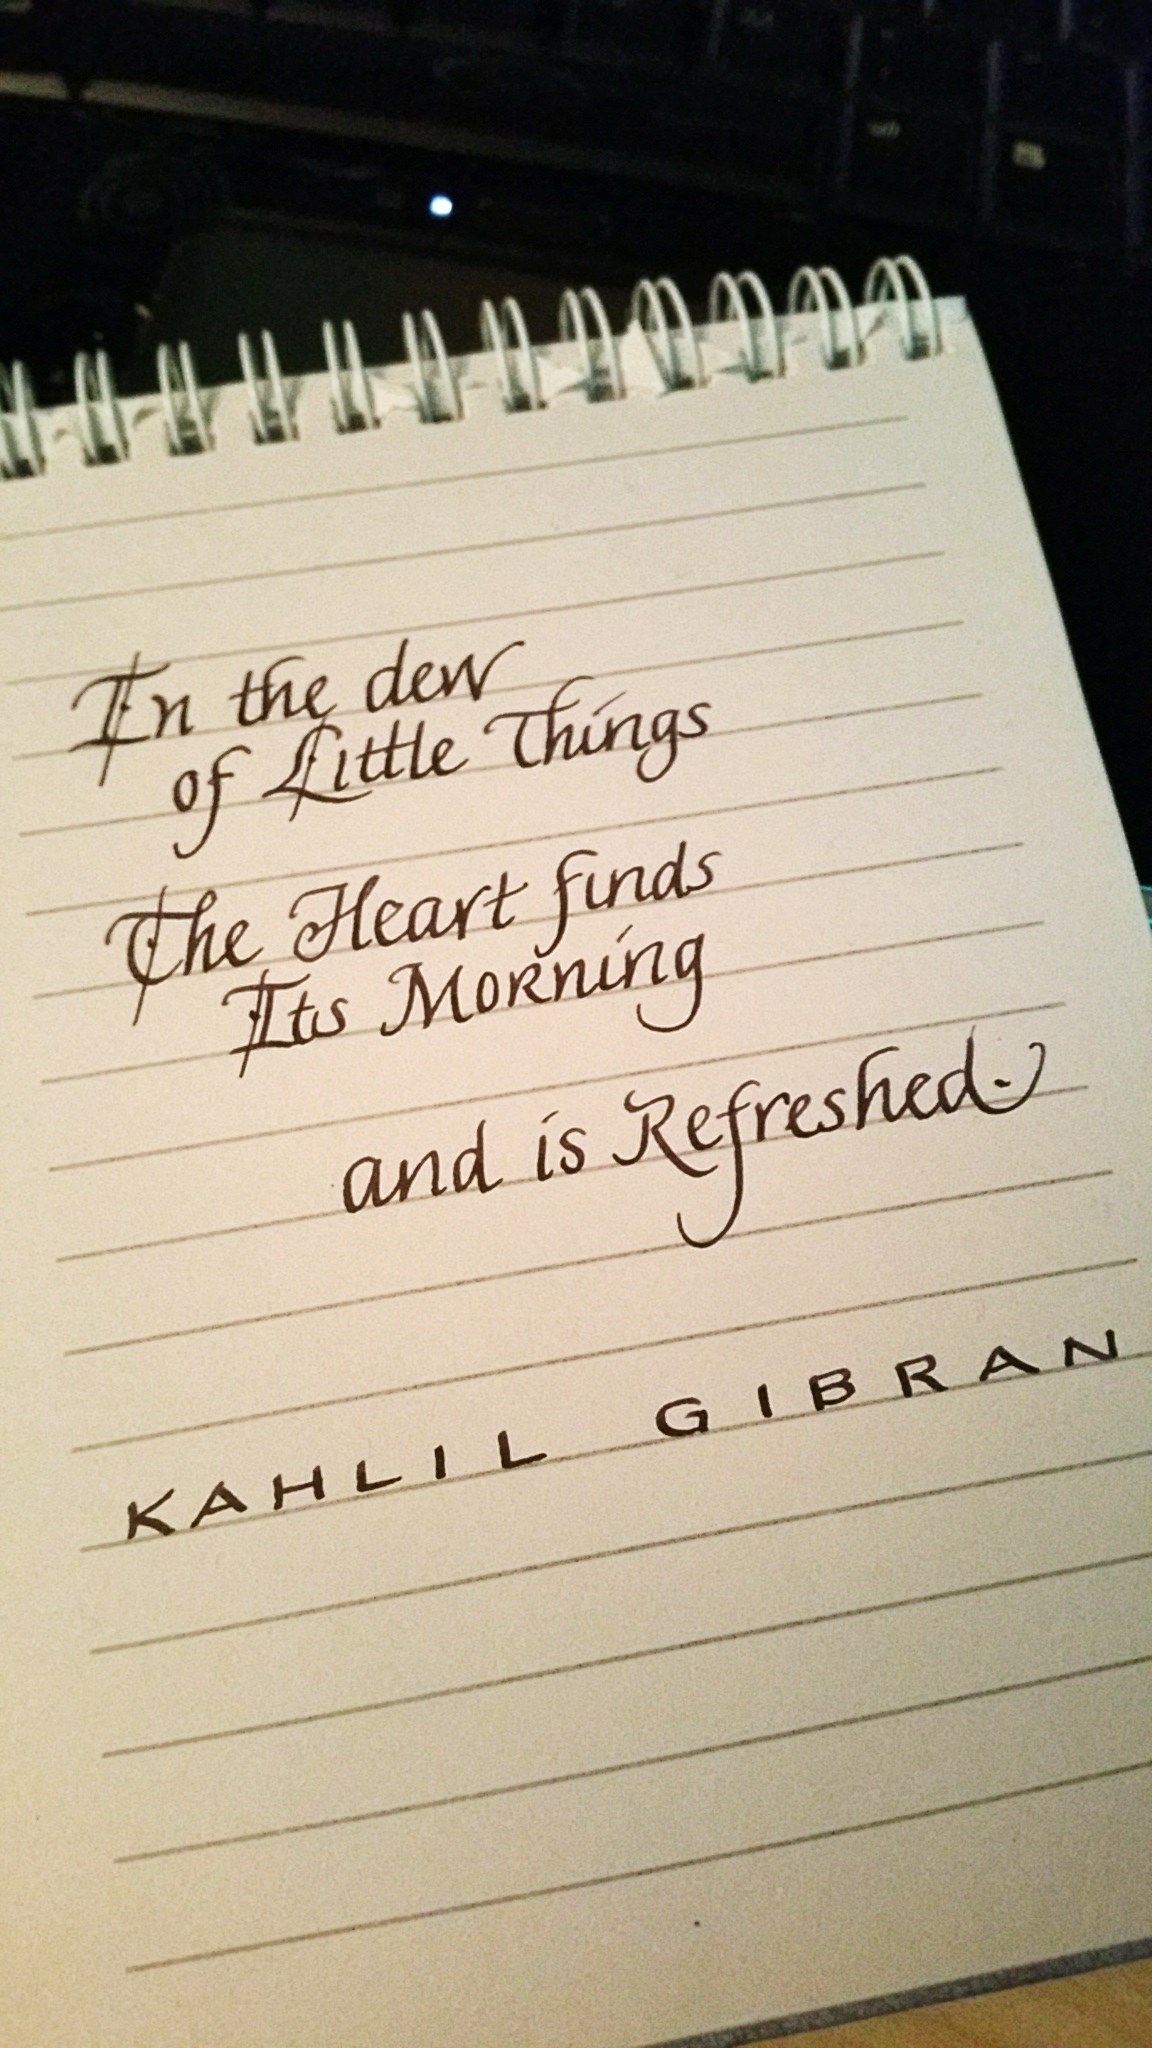 In the dew
of Little Things
The Heart finds
Its Morning
and is Refreshed.
KAHLIL GIBRAN